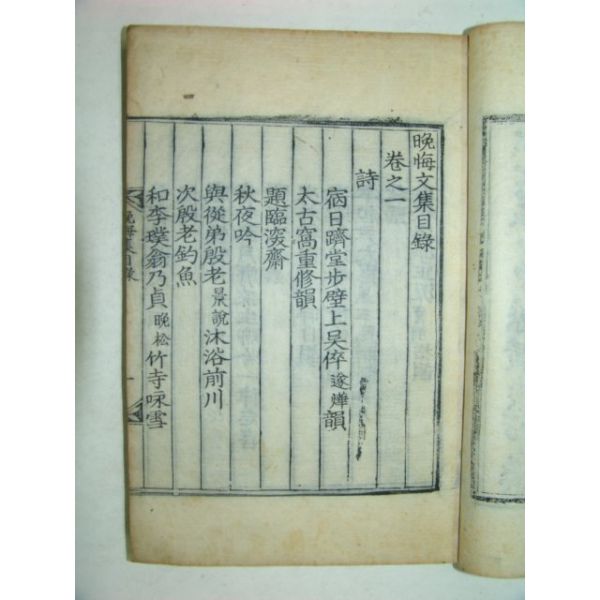 晚悔文集目錄
卷之一
詩
宿日躋堂步壁上吳倅遂燁韻
太古窩重修韻
題臨溪齋
秋夜吟
與從弟殷老景說沐浴前川
次殷老釣魚
和李璞翁乃貞晚松竹寺咏雪
晚悔集目錄
一